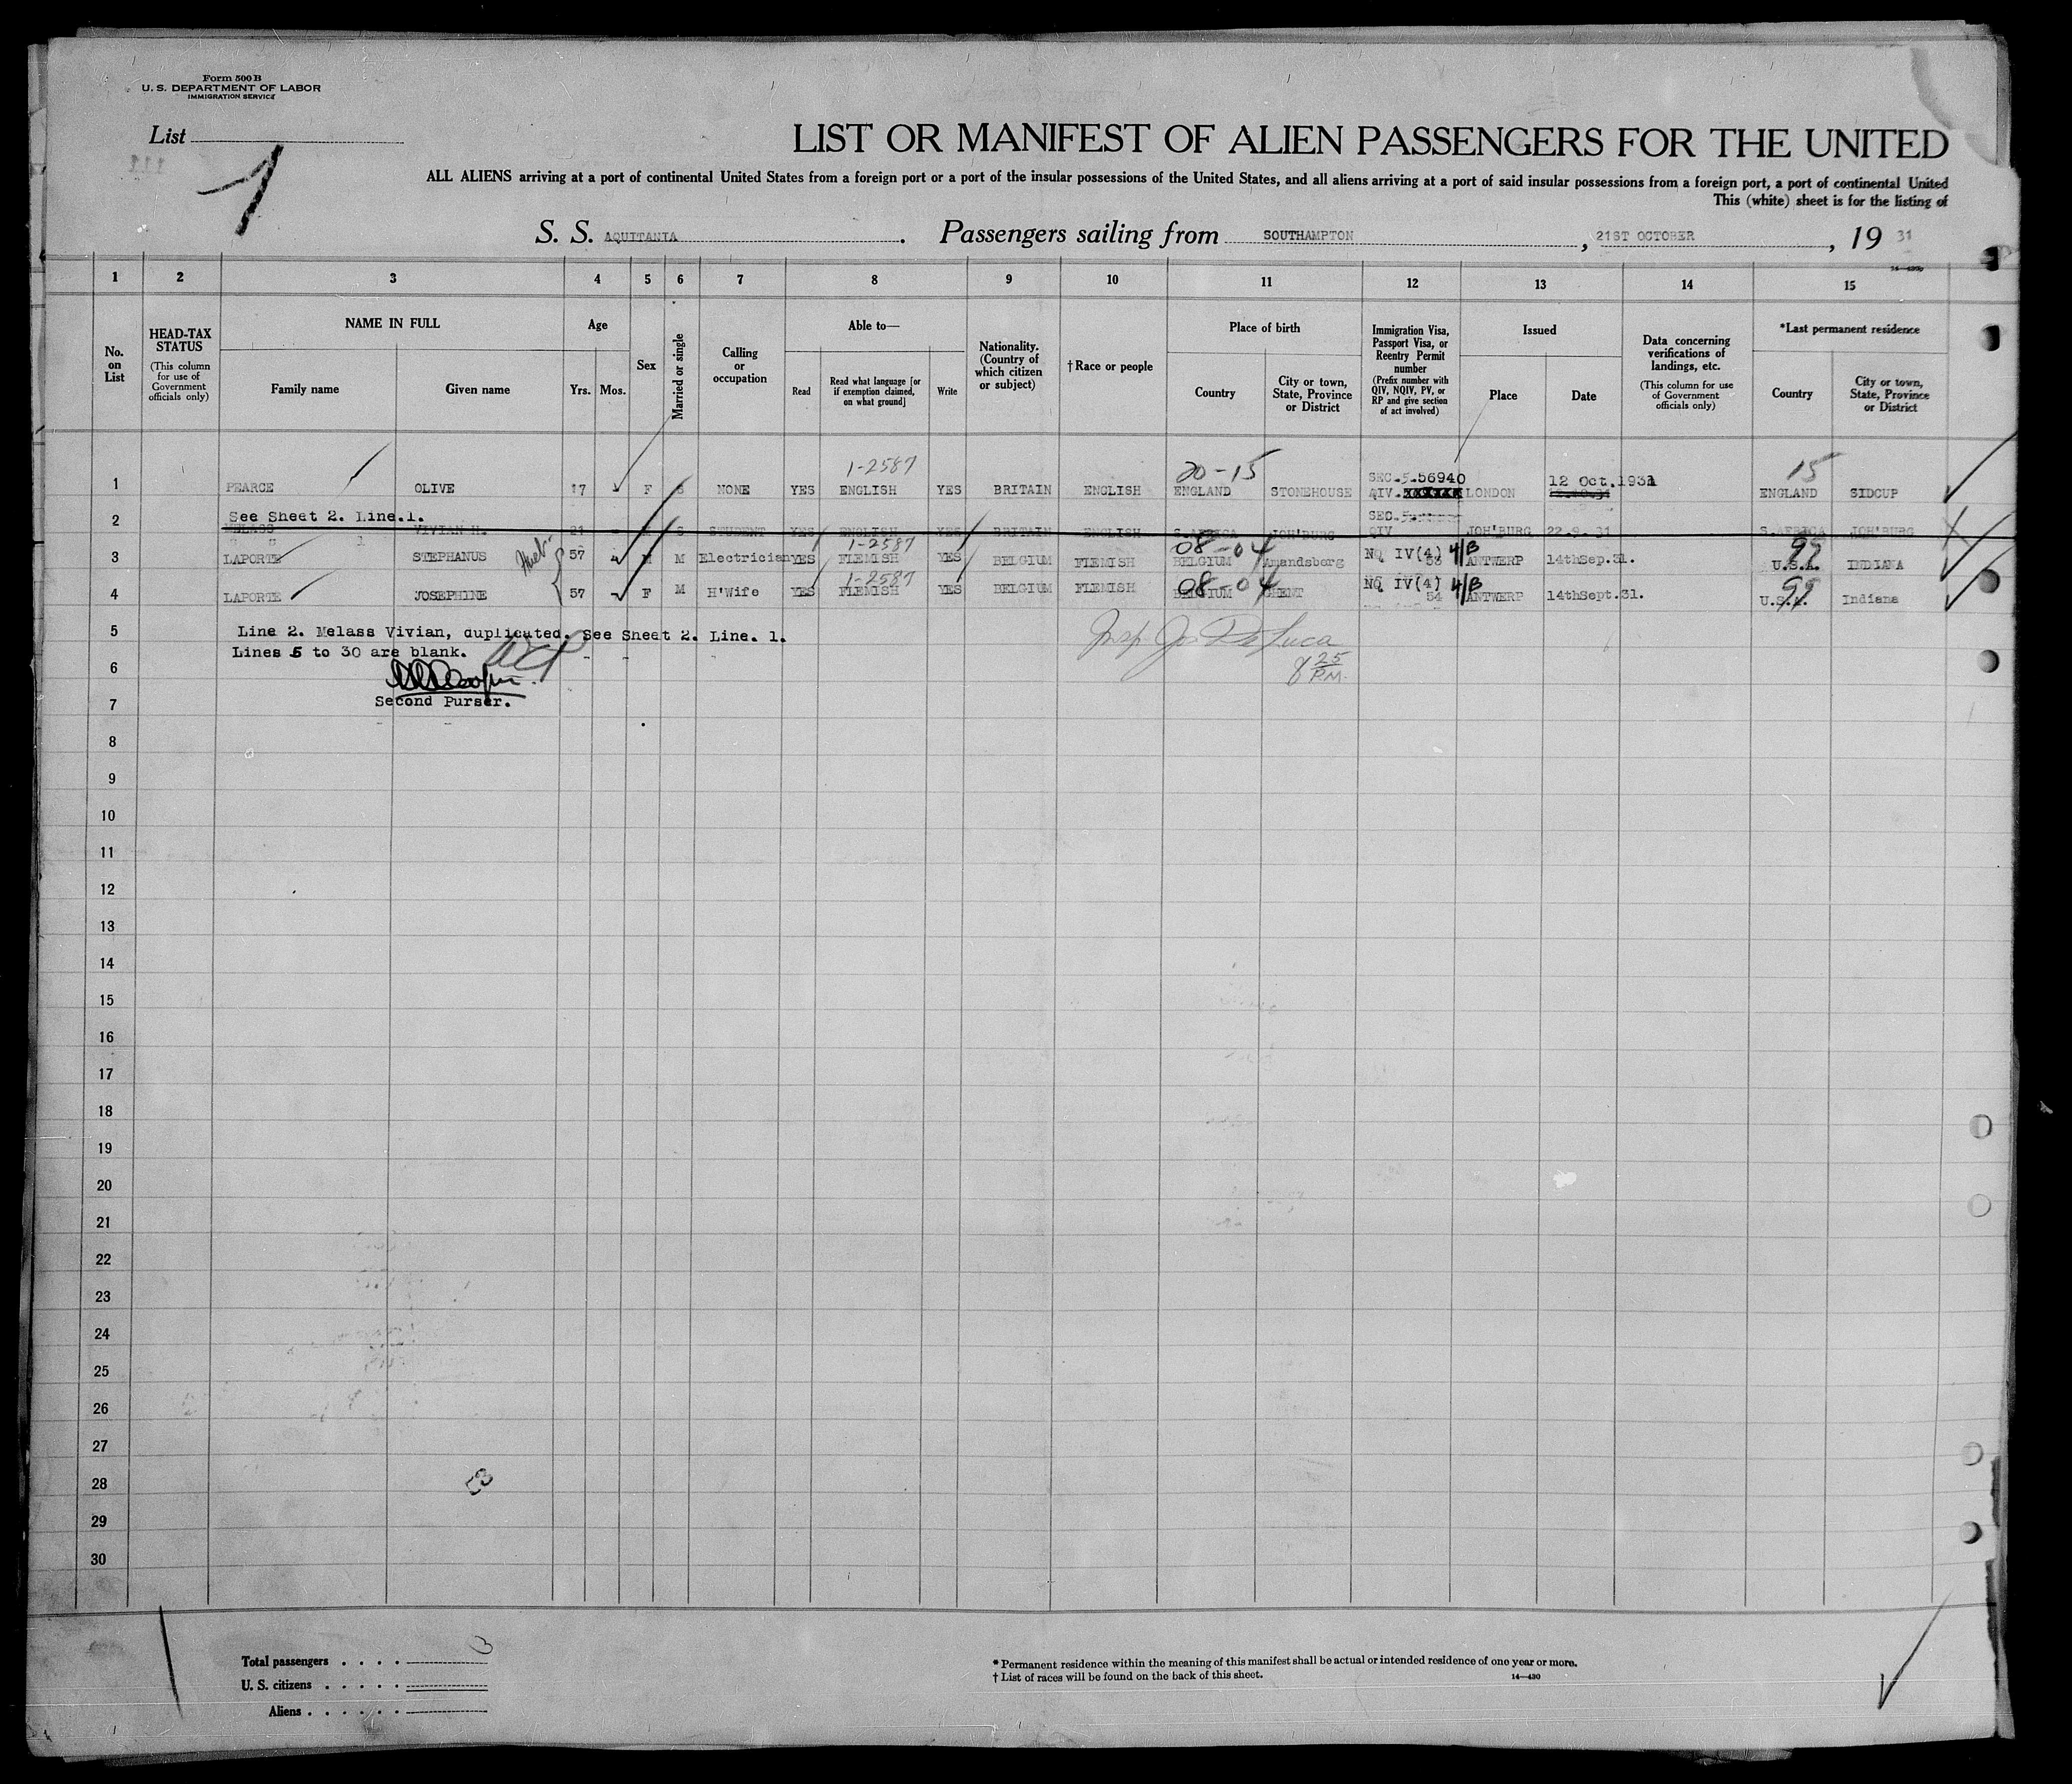 Form 500 B
U. S. DEPARTMENT OF LABOR
IMMIGRATION SERVICE
List
1
LIST OR MANIFEST OF ALIEN PASSENGERS FOR THE UNITED
ALL ALIENS arriving at a port of continental United States from a foreign port or a port of the insular possessions of the United States, and all aliens arriving at a port of said insular possessions from a foreign port, a port of continental United
This (white) sheet is for the listing of
S. S. AQUITANIA. Passengers sailing from SOUTHAMPTON, 21ST OCTOBER, 19 31
14—430
1 2 3 4 5 6 7 8 9 10 11 12 13 14 15
No. on List
HEAD-TAX STATUS (This column for use of Government officials only)
NAME IN FULL
Family name Given name
Age
Yrs. Mos.
Sex
Married or single
Calling or occupation
Able to—
Read Read what language [or if exemption claimed, on what ground] Write
Nationality. (Country of which citizen or subject)
†Race or people
Place of birth
Country City or town, State, Province or District
Immigration Visa, Passport Visa, or Reentry Permit number (Prefix number with QIV, NQIV, PV, or RP and give section of act involved)
Issued
Place Date
Data concerning verifications of landings, etc. (This column for use of Government officials only)
*Last permanent residence
Country City or town, State, Province or District
1-2587 20-15 SEC.5.56940 12 Oct.1931 15
1 PEARCE OLIVE 17 F S NONE YES ENGLISH YES BRITAIN ENGLISH ENGLAND STONEHOUSE QIV. LONDON ENGLAND SIDCUP
See Sheet 2. Line.1. SEC.5
2 MELASS VIVIAN H. 21 S STUDENT YES ENGLISH YES BRITAIN ENGLISH S.AFRICA JOH'BURG QIV JOH'BURG 22.9.31 S.AFRICA JOH'BURG
1-2587 08-04 99
3 LAPORTE STEPHANUS 57 M M Electrician YES FLEMISH YES BELGIUM FLEMISH BELGIUM Amandsberg NQ IV(4) 53 4/B ANTWERP 14thSep.31. U.S.A. INDIANA
1-2587 08-04 99
4 LAPORTE JOSEPHINE 57 F M H'Wife YES FLEMISH YES BELGIUM FLEMISH BELGIUM GHENT NQ IV(4) 54 4/B ANTWERP 14thSept.31. U.S.A. Indiana
5 Line 2. Melass Vivian, duplicated. See Sheet 2. Line. 1.
Insp Jos De Luca
Lines 5 to 30 are blank.
8 25 P.M.
6
Second Purser.
7
8
9
10
11
12
13
14
15
16
17
18
19
20
21
22
23
24
25
26
27
28
29
30
Total passengers . . . . 3
U. S. citizens . . . . .
Aliens . . . . . .
* Permanent residence within the meaning of this manifest shall be actual or intended residence of one year or more.
† List of races will be found on the back of this sheet.
14—430